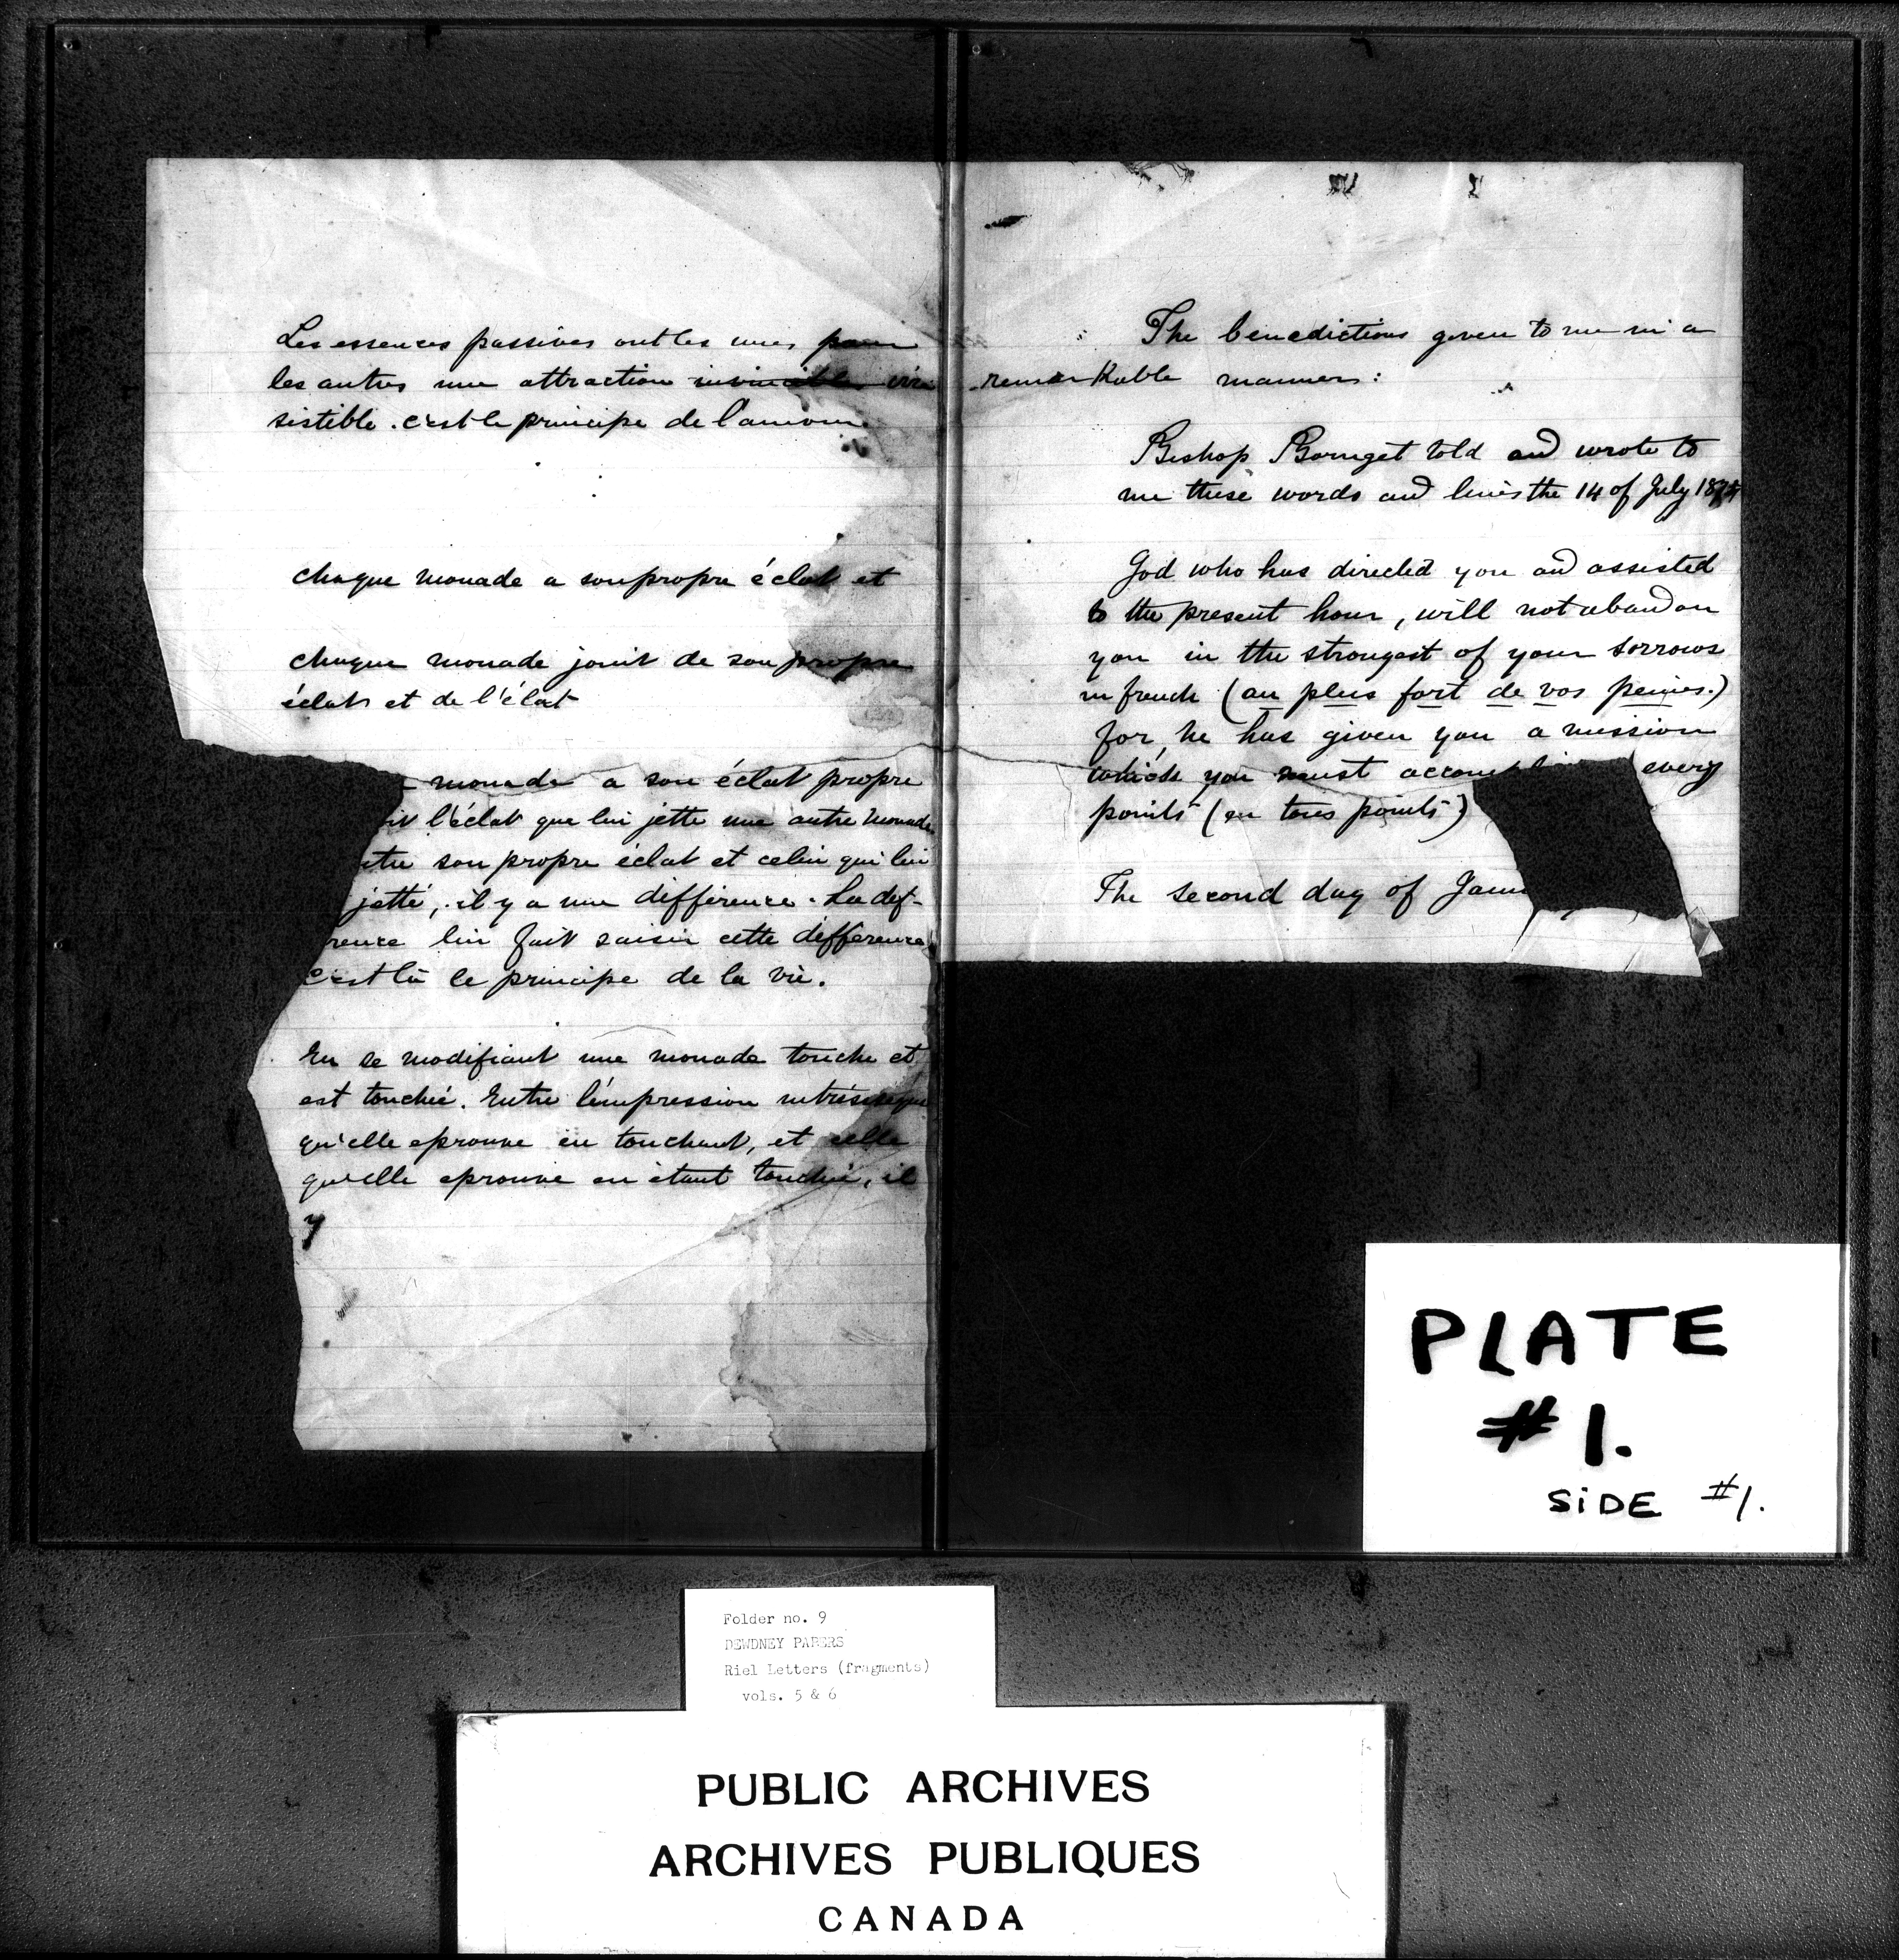 Les essences passives ont les unes pour
les autres une attraction invincible irré
sistible. c'est le principe de l'amour
chaque monade a son propre éclat et
chaque monade jouit de son propre
éclat et de l'éclat
monade a son éclat propre
it l'éclat que lui jette une autre monade
tre son propre éclat et celui qui lui
jetté, il y a une différence. La dif-
rence lui fait saisir cette différence
c'est là le principe de la vie.
En se modifiant une monade touche et
est touchée. Entre l'impression intrinsèque
qu'elle eprouve en touchant, et celle
qu'elle eprouve en étant touchée, il
y
The benedictions given to me in a
remarkable manner:
Bishop Bourget told and wrote to
me these words and lines the 14 of July 1875
God who has directed you and assisted
to the present hour, will not abandon
you in the strongest of your sorrows
in french (au plus fort de vos peines.)
for, he has given you a mission
which you must accompli every
points (en tous points)
The second day of Janu
PLATE
#1.
SiDE #1.
Folder no. 9
DEWDNEY PAPERS
Riel Letters (fragments)
vols. 5 & 6
PUBLIC ARCHIVES
ARCHIVES PUBLIQUES
CANADA